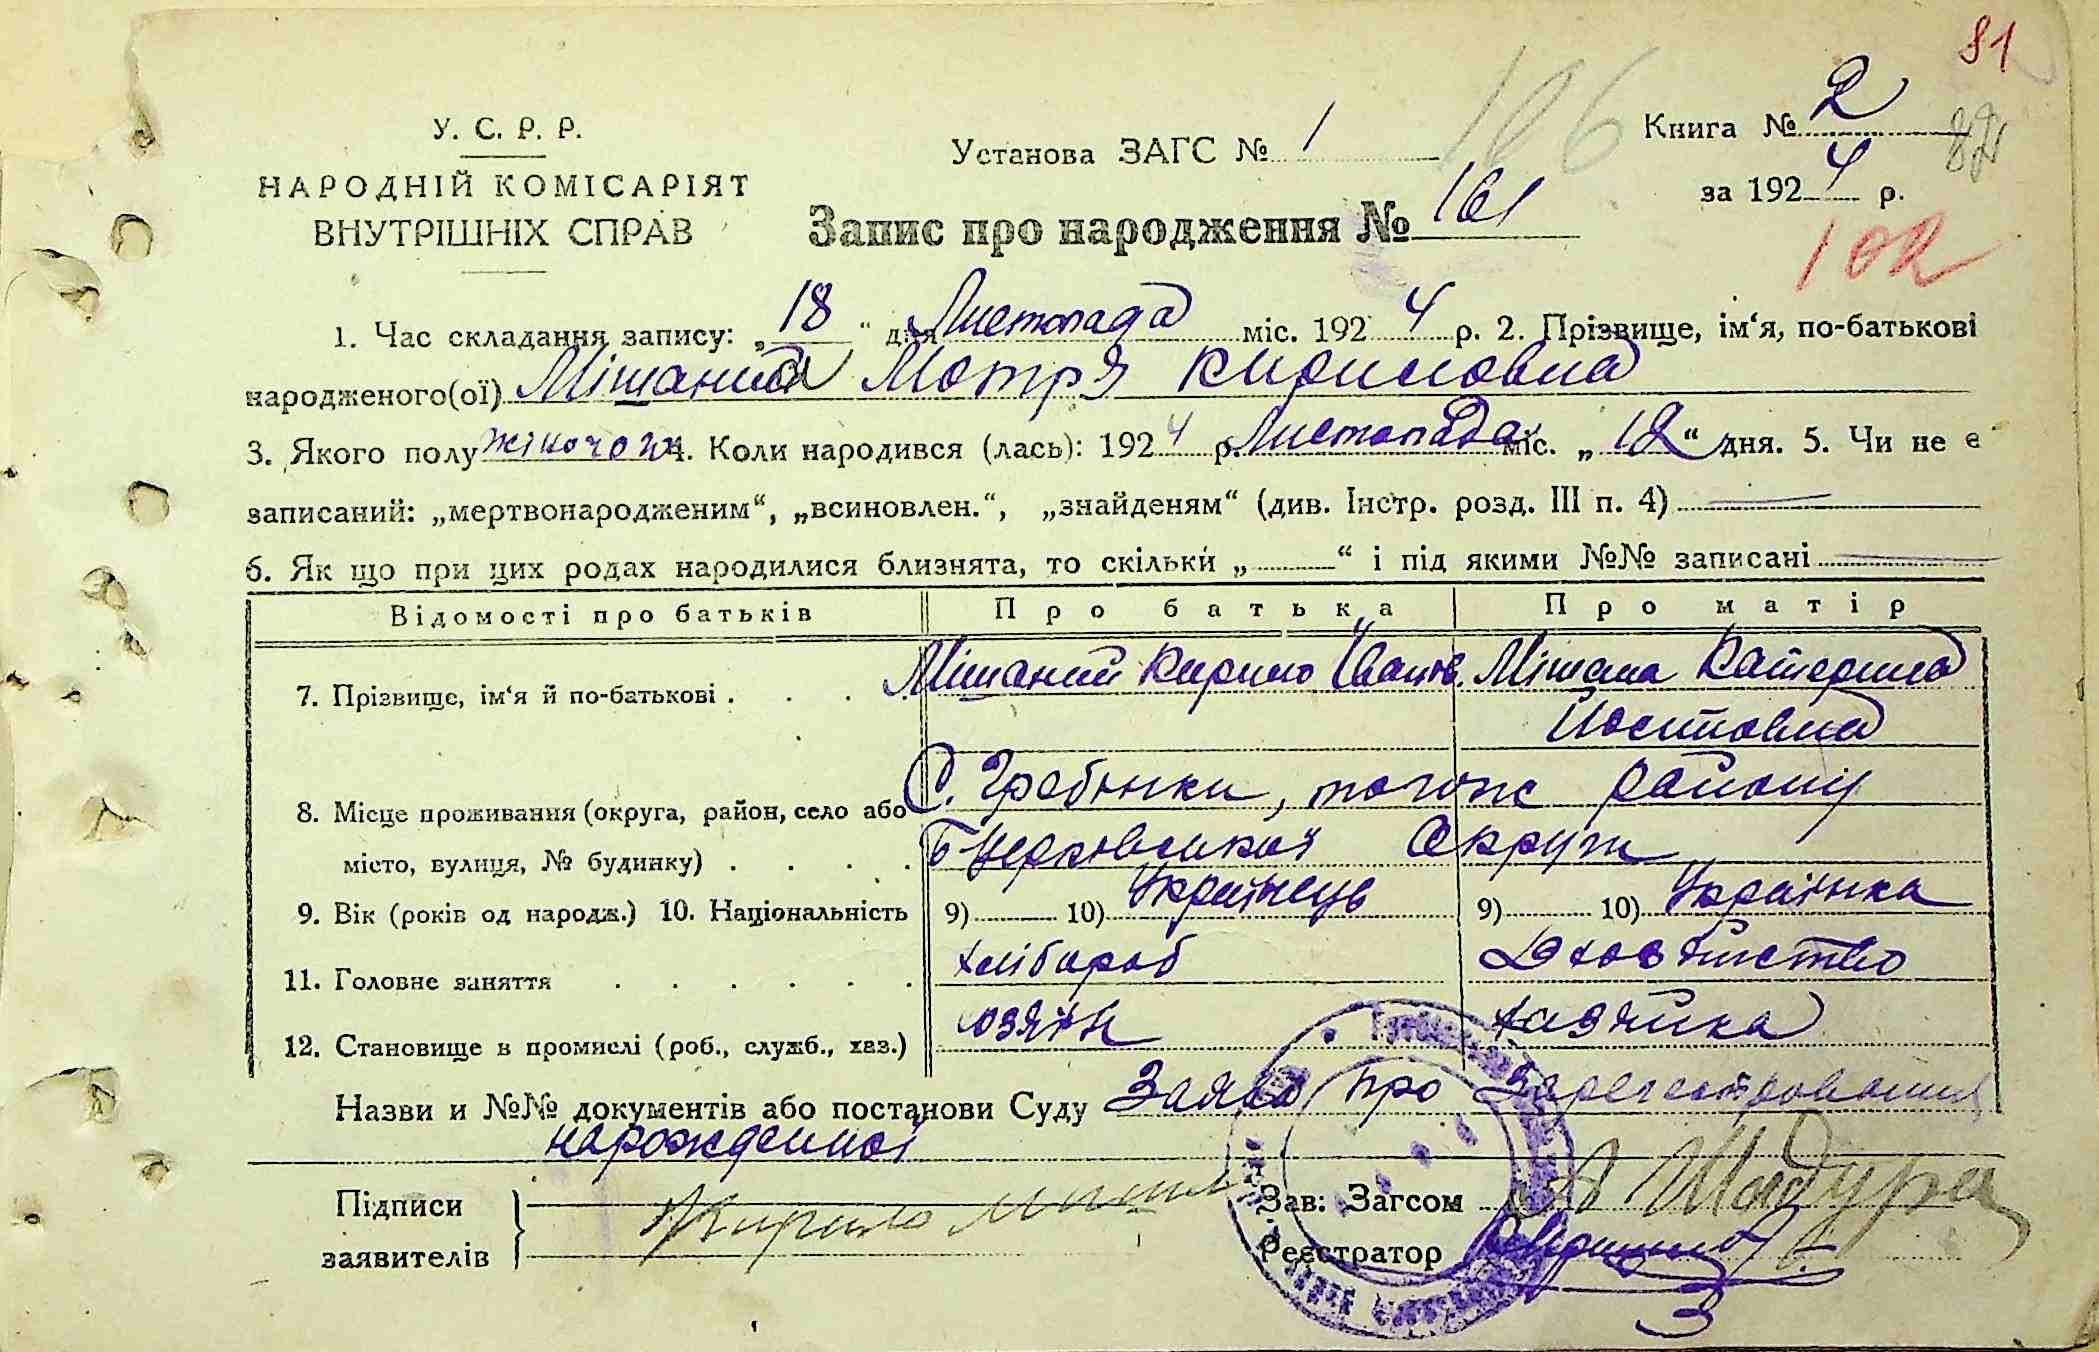 81
У. С. Р. Р.
НАРОДНІЙ КОМІСАРІЯТ
ВНУТРІШНІХ СПРАВ
Установа ЗАГС № 1
106
Книга № 2
82
за 1924 р.
Запис про народження № 161
102
1. Час складання запису: „18“ дня Листопада міс. 1924 р. 2. Прізвище, ім‘я, по-батькові
народженого(ої) Мішаний Мотря Кириловна
3. Якого полу жіночого 4. Коли народився (лась): 1924 р. Листопада міс. „12“ дня. 5. Чи не є
записаний: „мертвонародженим“, „всиновлен.“, „знайденям“ (див. Інстр. розд. III п. 4)
6. Як що при цих родах народилися близнята, то скільки „ “ і під якими №№ записані
Відомості про батьків Про батька Про матір
7. Прізвище, ім‘я й по-батькові . . . Мішаний Кирило Іванов. Мішана Катерина
8. Місце проживання (округа, район, село або С. Гребінки, тогож району
місто, вулиця, № будинку) . . . . Б Церковської Округи
9. Вік (років од народж.) 10. Національність 9) 10) Українець 9) 10) Українка
11. Головне заняття . . . . . . хлібороб Дхозяйство
12. Становище в промислі (роб., служб., хаз.) хазяйка
Назви и №№ документів або постанови Суду Заява про зарегестровання
нарождения
Підписи
заявителів
Кирило
Зав: Загсом Шадура
Реєстратор